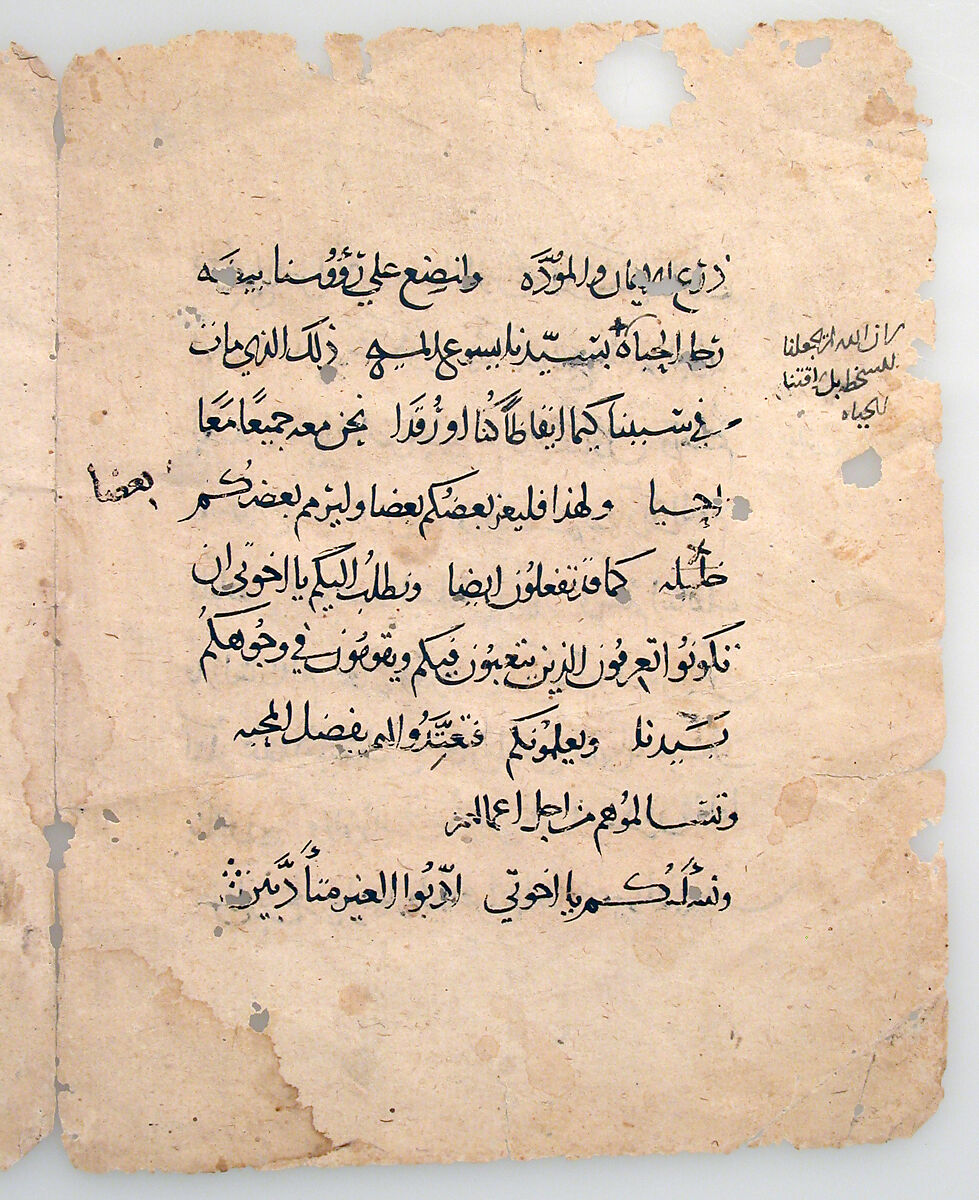 درع الايمان والموُدَّه ولنضع على رؤوسنا بيضه
رجا الحياه بسيّدنا يسوع المسيح ذلك الذي مات
في سببنا كيما ايقاظاً كُنا او رُقدا نحن معه جميعًا مَعًا
نحيا ولهذا فليعز بعضكم بعضا وليرمم بعضكم
بعضا
كما قد تفعلون ايضا ونطلبُ اليكم يا اخوتى ان
تكونُوا تعرفون الذين يتعبون فيكم ويقومُون في وجُوهكم
بسَيدنا ويعلمُونكم فتعتَّدُوا لهم بفضل المحبه
وتتسالموُهم من اجل اعمالهم
ونسَلُكم يا اخوتي ادّبُوا الغير متأَدّبين
ان الله لم يجعلنا
للسخط بل لاقتنا
الحياه